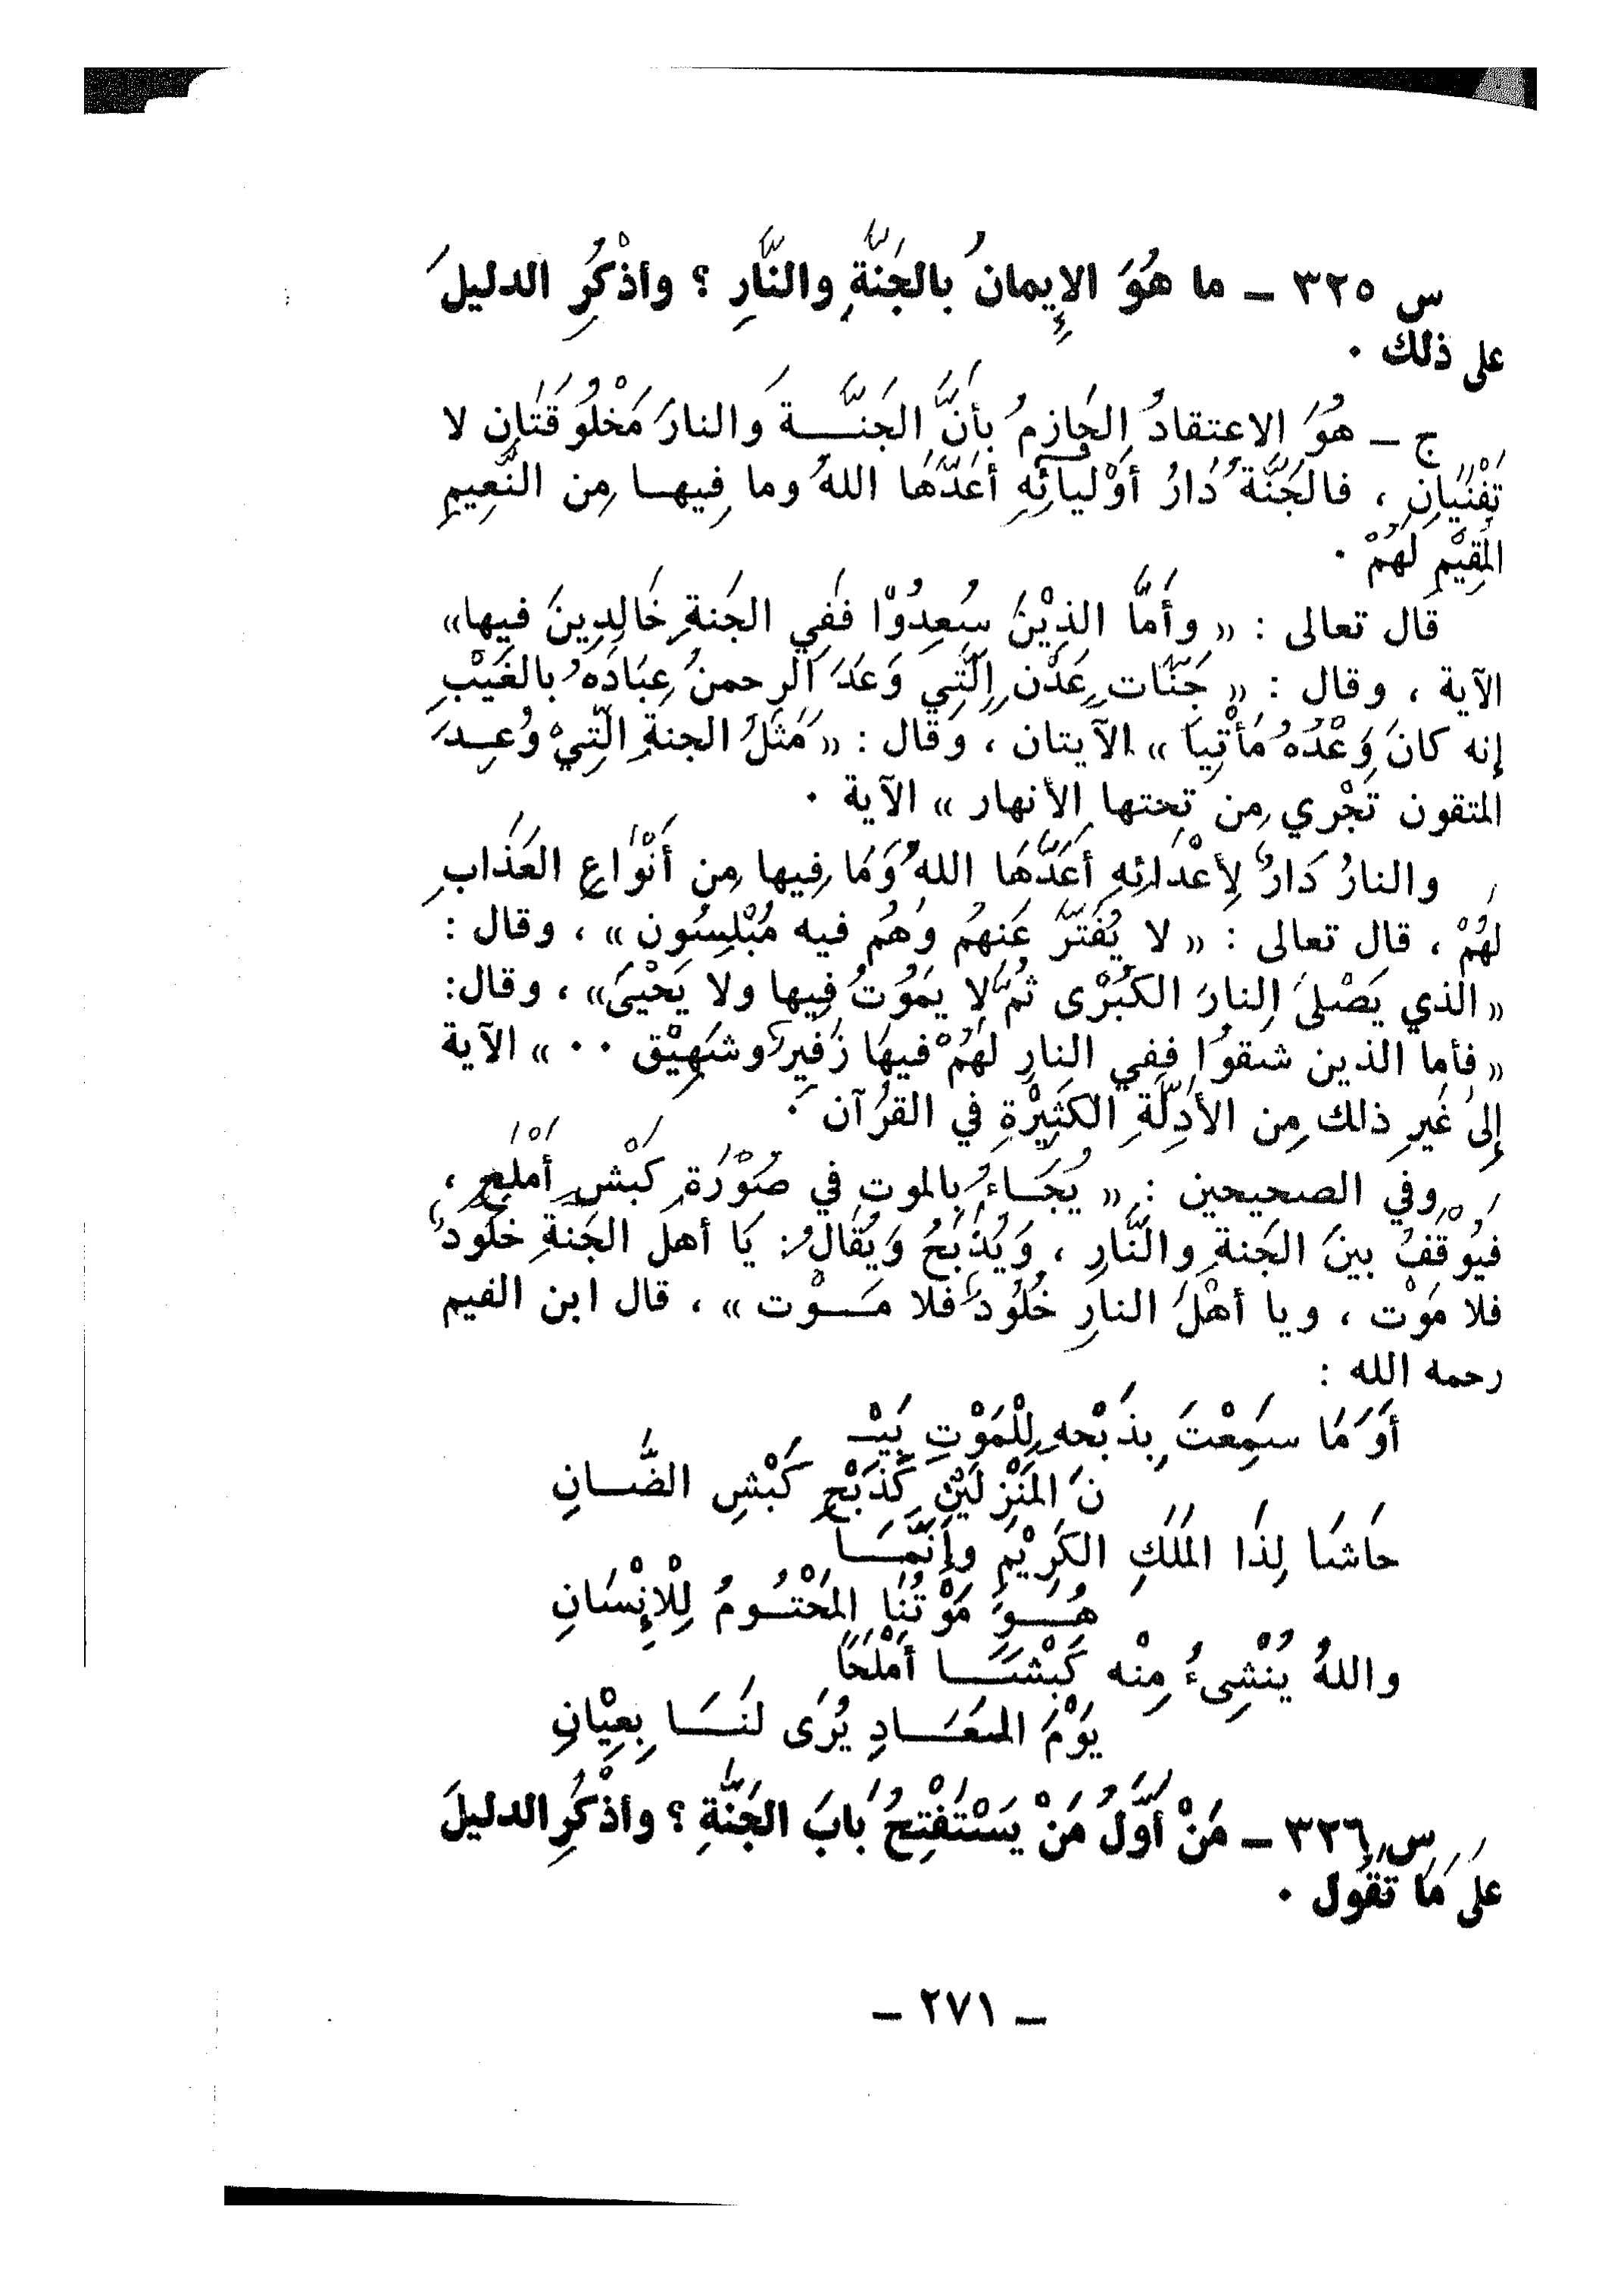 س ٣٢٥ – ما هُوَ الإِيمانُ بالجَنَّةِ والنَّارِ ؟ وأذْكُرِ الدليلَ
على ذلك .
ج – هُوَ الاعتقادُ الجَازِمُ بأَنَّ الجَنَّــةَ والنارَ مَخْلُوقَتَانِ لا
تَفْنَيَانِ ، فالجَنَّةُ دَارُ أَوْلِيَائِهِ أَعَدَّهَا اللهُ وما فِيهــا مِن النَّعِيمِ
المُقِيْمِ لَهُمْ .
قَال تعالى : « وأَمَّا الذِيْنَ سُعِدُوْا فَفِي الجَنةِ خَالِدِينَ فيها»
الآية ، وقال : « جَنَّات عَدْنٍ الَّتِي وَعَدَ الرحمنُ عِبَادَهُ بالغَيْبِ
إنه كانَ وَعْدُهُ مَأْتِيا » الآيتان ، وَقال : « مَثَلُ الجنةِ الَّتِيْ وُعِــدَ
المتقون تَجْري مِن تحتها الأنهار » الآية .
والنارُ دَارٌ لِأَعْدَائِهِ أَعَدَّهَا اللهُ وَمَا فِيها مِن أَنْوَاعِ العَذَابِ
لَهُمْ ، قال تعالى : « لا يُفَتَّرُ عَنهُمْ وَهُم فيه مُبْلِسُون » ، وقال :
« الذي يَصْلىَ النارَ الكُبْرْى ثُمَّ لا يَمَوُتُ فِيها ولا يَحْيىَ» ، وقال:
« فأما الذين شقوُا ففي النارِ لَهُمْ فيهَا زَفِيرٌ وشَهِيْق . . » الآية
إلىَ غَيرِ ذلك مِن الأَدِلَّةِ الكَثِيْرْةِ في القرُآن .
وفي الصحيحين : « يُجَــاءُ بالموتِ في صُوْرَةِ كَبْشٍ أَمْلَحٍ ،
فَيُوْقَفُ بينَ الجَنةِ والنَّارِ ، وَيُذْبَحُ وَيُقَالُ : يَا أهلَ الجَنةِ خلُودٌ
فلا مَوْت ، ويا أهْلَ النارِ خُلُودٌ فلا مَــوْت » ، قال ابن القيم
رحمه الله :
أَوَ مَا سَمِعْتَ بِذَبْحهِ لِلْمَوْتِ بَيْــ
نَ المَنْزِلَيْنِ كَذَبْحِ كَبْشِ الضَّــانِ
حَاشَا لِذَا المَلَكِ الكَرِيْمِ وإِنَّمَــا
هُــوَ مَوْتُنَا المَحْتُــومُ لِلْإِنْسَانِ
واللهُ يُنْشِىءُ مِنْه كَبْشَــا أَمْلَحًا
يَوْمَ المعَــادِ يُرَى لَنَــا بِعِيْانِ
س ٣٢٦ – مَنْ أَوَّلُ مَنْ يَسْتَفْتِحُ بَابَ الجَنَّةِ ؟ وأذْكُرِ الدليلَ
عَلىَ مَا تَقُول .
– ٢٧١ –